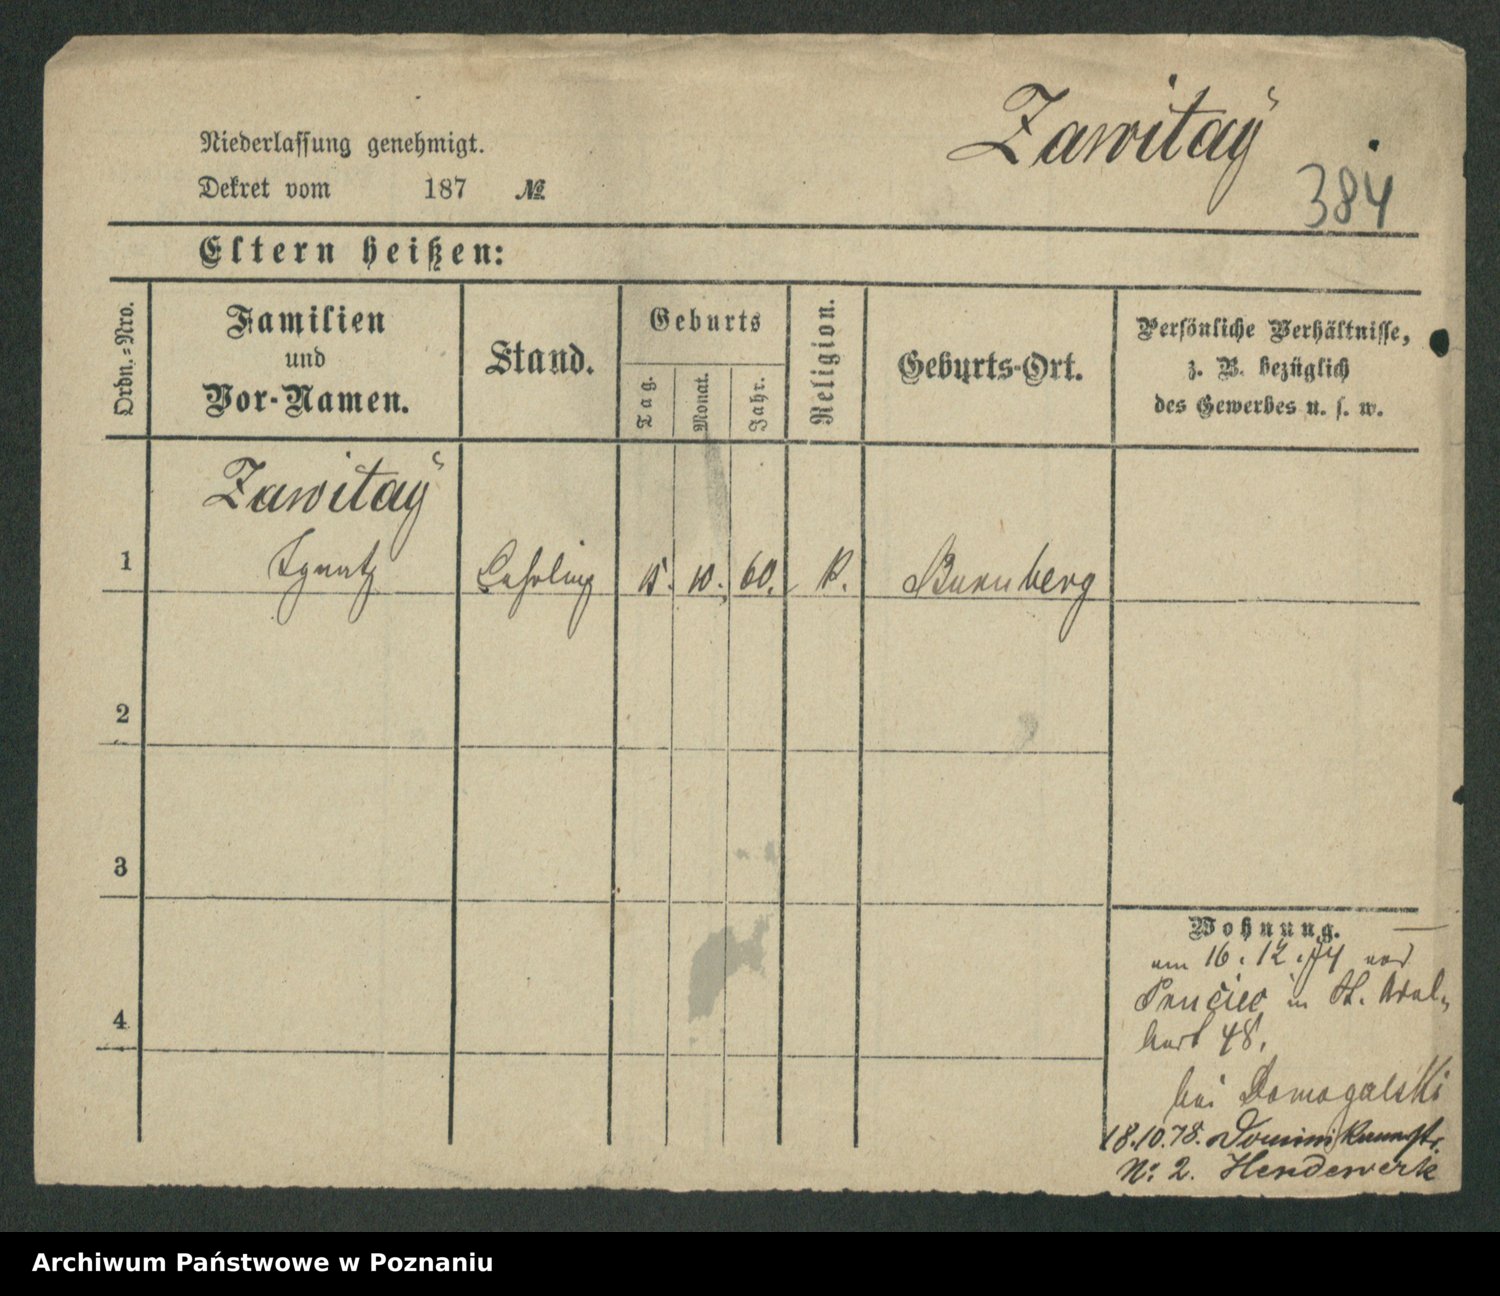 Zawitaÿ
384
Niederlassung genehmigt.
Dekret vom 187 №
Eltern heißen:
Ordn.=Nro.
Familien
und
Vor-Namen.
Stand.
Geburts
Tag.
Monat.
Jahr.
Religion.
Geburts-Ort.
Persönliche Verhältnisse,
z. B. bezüglich
des Gewerbes u. s. w.
Zawitaÿ
1 Ignatz Lehrling 15. 10. 60. k.
2
3
4
Wohnung.
am 16.12.74 von
in St. Adal-
bert 48.
bei Domogalski
18.10.78. Dominikanerstr.
N: 2. Hendewerk
Archiwum Państwowe w Poznaniu